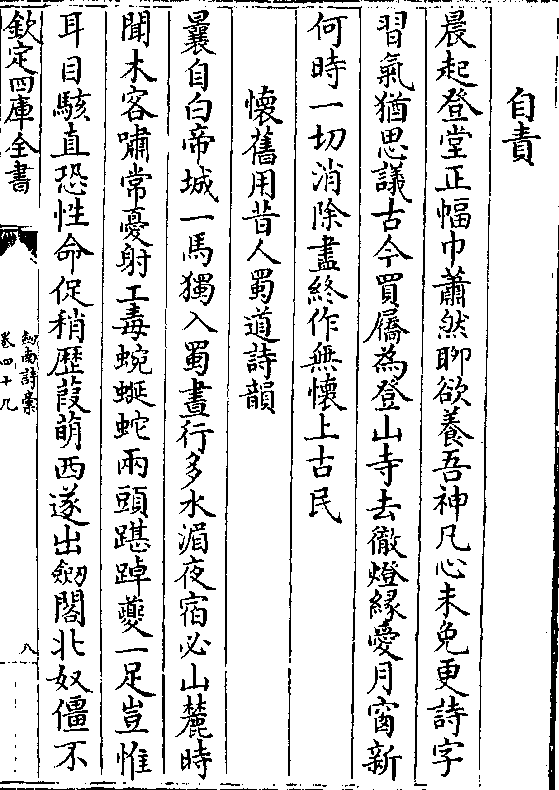 自責
晨起登堂正幅巾蕭然聊欲養吾神凡心未免更詩字
習氣猶思議古今買屩為登山寺去徹燈緣愛月窗新
何時一切消除盡終作無懷上古民
懷舊用昔人蜀道詩韻
曩自白帝城一馬獨入蜀晝行多水湄夜宿必山麓時
聞木客嘯常憂射工毒蜿蜒蛇兩頭踸踔夔一足豈惟
耳目駭直恐性命促稍歴葭萌西遂出劒閣北奴僵不
欽定四庫全書
劍南詩稾
卷四十九
八